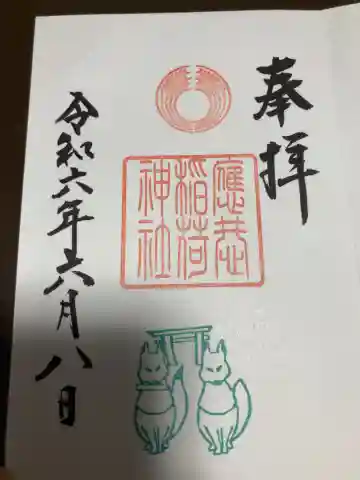 奉拝
應恭
稲荷
神社
令和六年六月八日